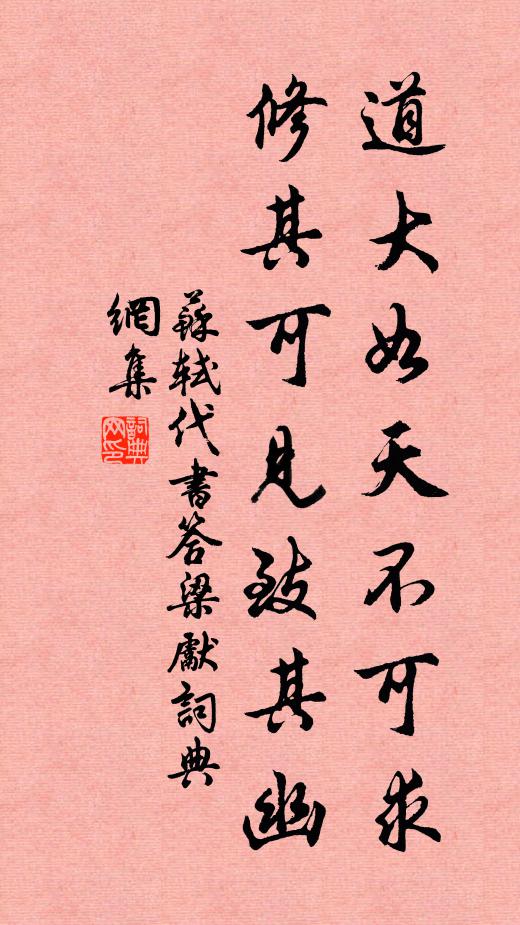 道大如天不可求
修其可見致其幽
蘇軾代書答梁獻詞典
網集
詞典
网印